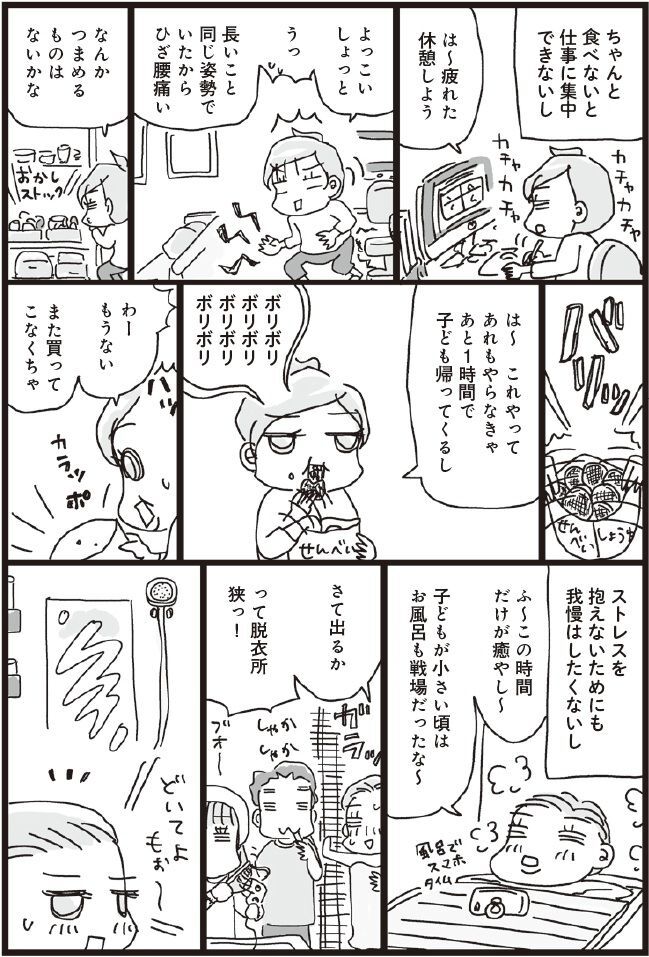 ちゃんと
食べないと
仕事に集中
できないし
は〜疲れた
休憩しよう
カチャ
カチャ
カチャ
カチャ
よっこい
しょっと
うっ
長いこと
同じ姿勢で
いたから
ひざ腰痛い
なんか
つまめる
ものは
ないかな
おかし
ストック
バリッ
しょうゆ
せんべい
は〜 これやって
あれもやらなきゃ
あと1時間で
子ども帰ってくるし
ボリボリ
ボリボリ
ボリボリ
ボリボリ
せんべい
ハッ
わー
もうない
また買って
こなくちゃ
カラッポ
ストレスを
抱えないためにも
我慢はしたくないし
ふ〜この時間
だけが癒やし〜
子どもが小さい頃は
お風呂も戦場だったな〜
風呂で
スマホ
タイム
さて出るか
って脱衣所
狭っ!
ガラッ
しゃか
しゃか
ブオー
どいてよ
もぉ〜